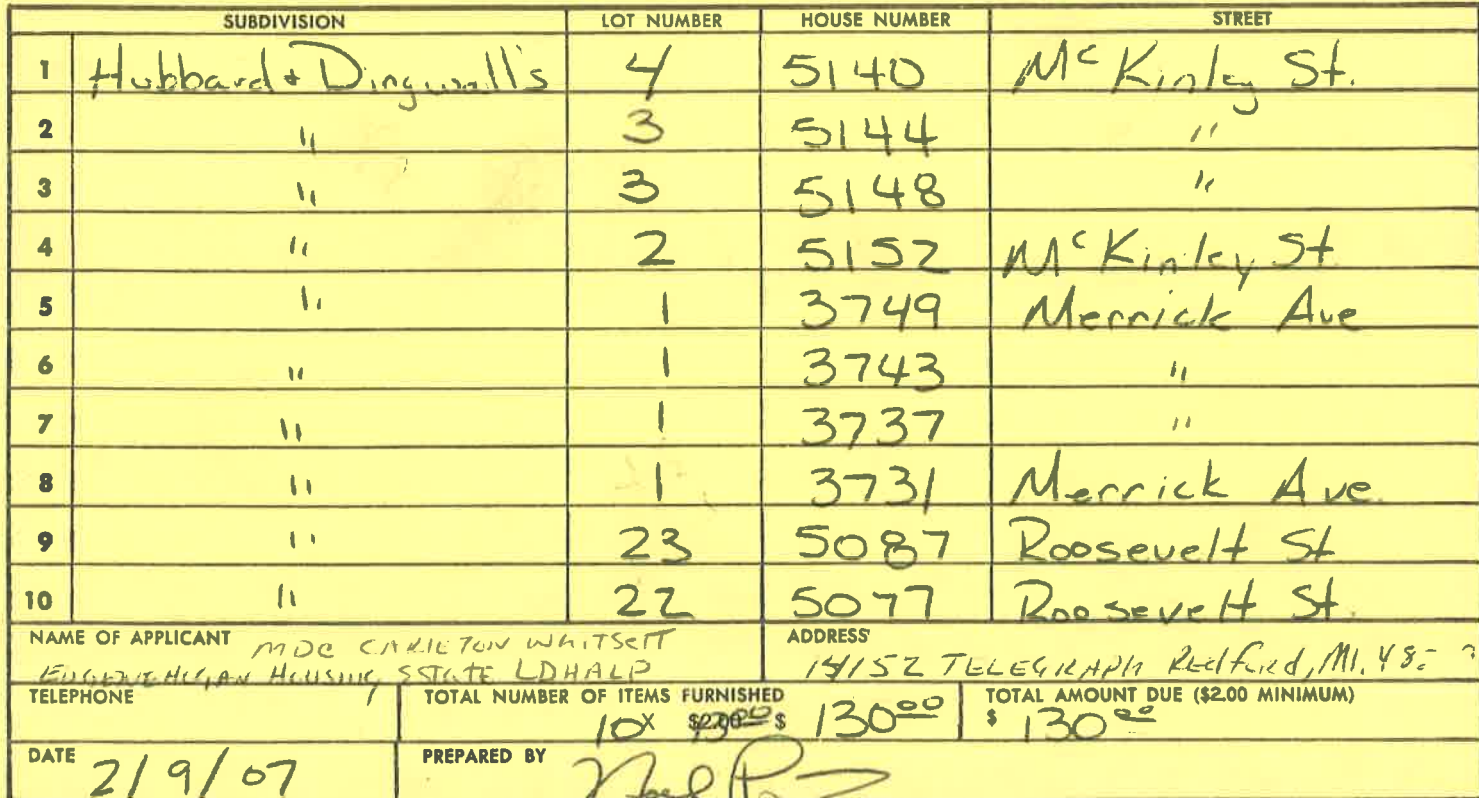 SUBDIVISION LOT NUMBER HOUSE NUMBER STREET
1 Hubbard + Dingwall's 4 5140 McKinley St.
2 " 3 5144 "
3 " 3 5148 "
4 " 2 5152 McKinley St.
5 " 1 3749 Merrick Ave
6 " 1 3743 "
7 " 1 3737 "
8 " 1 3731 Merrick Ave.
9 " 23 5087 Roosevelt St
10 " 22 5077 Roosevelt St.
NAME OF APPLICANT MDC CARLETON WHITSETT ADDRESS
HOUSING ESTATE LDHALP 14152 TELEGRAPH Redford, MI.
TELEPHONE TOTAL NUMBER OF ITEMS FURNISHED TOTAL AMOUNT DUE ($2.00 MINIMUM)
10 X $2.00 $ 130.00 $ 130.00
DATE 2/9/07 PREPARED BY